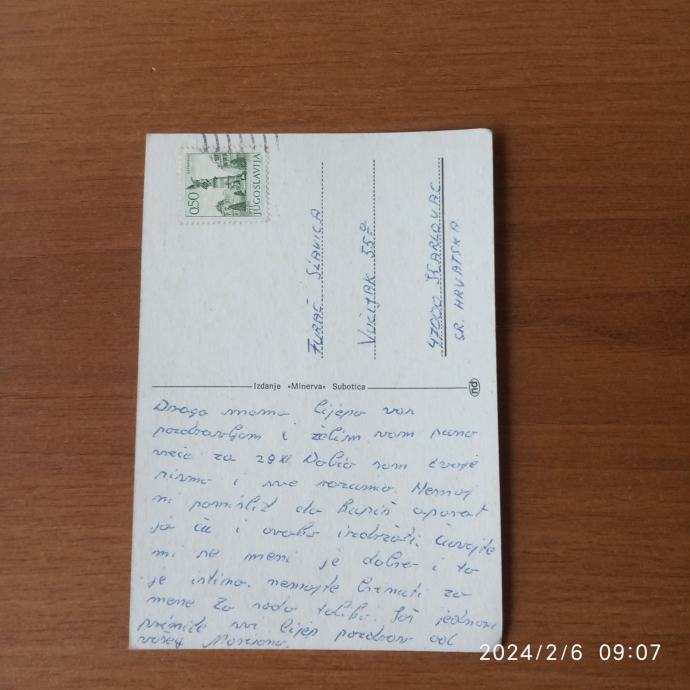 0,50
JUGOSLAVIJA
FURAČ SLAVICA
VUČIJAK 35
47000 KARLOVAC
SR. HRVATSKA
Izdanje «Minerva» Subotica
nd
Draga mama lijepo vas
pozdravljam i želim vam puno
sreće za 29 XI. Dobio sam tvoje
pismo i sve razumio. Nemoj
ni pomislit da kupiš aparat
ja ću i ovako izdržati čuvajte
mi se meni je dobro i to
je istina. nemojte brinuti za
mene Za sada toliko. Još jednom
primite svi lijep pozdrav od
vašeg
2024/2/6 09:07